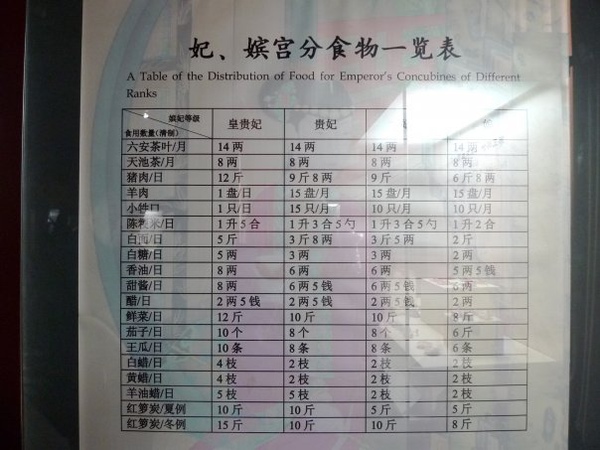 妃、嫔宫分食物一览表
A Table of the Distribution of Food for Emperor's Concubines of Different
Ranks
嫔妃等级
食用数量(清制) 皇贵妃 贵妃
六安茶叶/月 14 两 14 两 14 两 14 两
天池茶/月 8 两 8 两 8 两 8 两
猪肉/日 12 斤 9 斤 8 两 9 斤 6 斤 8 两
羊肉 1 盘/日 15 盘/月 15 盘/月 15 盘/月
小牲口 1 只/日 15 只/月 10 只/月 10 只/月
陈粳米/日 1 升 5 合 1 升 3 合 5 勺 1 升 3 合 5 勺 1 升 2 合
白面/日 5 斤 3 斤 8 两 3 斤 5 两 2 斤
白糖/日 5 两 3 两 3 两 2 两
香油/日 8 两 6 两 6 两 5 两 5 钱
甜酱/日 8 两 6 两 5 钱 6 两 5 钱 6 两
醋/日 2 两 5 钱 2 两 5 钱 2 两 5 钱 2 两
鲜菜/日 12 斤 10 斤 10 斤 8 斤
茄子/日 10 个 8 个 8 个 6 斤
王瓜/日 10 条 8 条 8 条 6 条
白蜡/日 4 枝 2 枝 2 枝 2 枝
黄蜡/日 4 枝 2 枝 2 枝 2 枝
羊油蜡/日 5 枝 5 枝 2 枝 2 枝
红箩炭/夏例 10 斤 10 斤 5 斤 5 斤
红箩炭/冬例 15 斤 10 斤 10 斤 8 斤